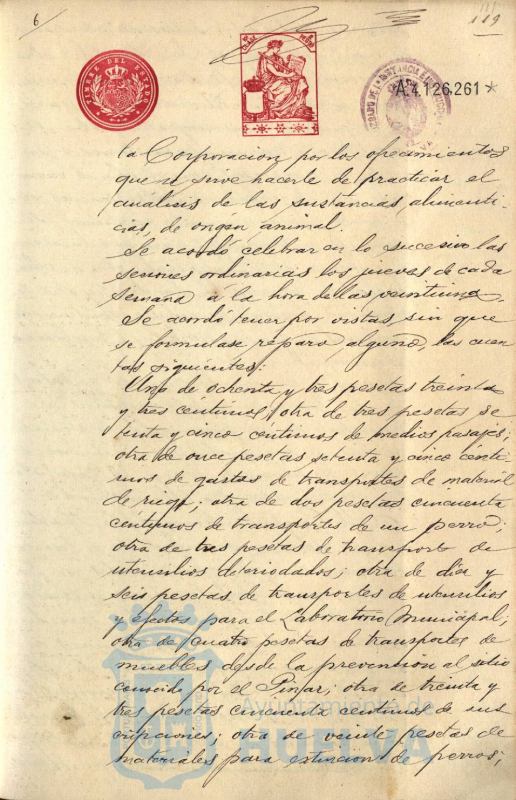 6
119
TIMBRE DEL ESTADO
A.4.126.261*
la Corporacion por los ofrecimientos
que se sirve hacerle de practicar el
analisis de las sustancias, alimenti-
cias, de origen animal.
Se acordó celebrar en lo sucesivo las
sesiones ordinarias los jueves de cada
semana á la hora de las veintiuna.
Se acordó tener por vistas, sin que
se formulase reparo alguno, las cuen
tas siguientes:
Una de ochenta y tres pesetas treinta
y tres centimos; otra de tres pesetas se
tenta y cinco céntimos de medios pasajes;
otra de once pesetas setenta y cinco cénti-
mos de gastos de transportes de material
de riego; otra de dos pesetas cincuenta
centimos de transportes de un perro;
otra de tres pesetas de transporte de
utensilios deteriodados; otra de diez y
seis pesetas de transportes de utensilios
y efectos para el Laboratorio Municipal;
otra de cuatro pesetas de transportes de
muebles desde la prevencion al sitio
conocido por el Pinar; otra de treinta y
tres pesetas cincuenta centimos de sus
cripciones; otra de veinte pesetas de
materiales para extincion de perros;
Ayuntamiento de
HUELVA